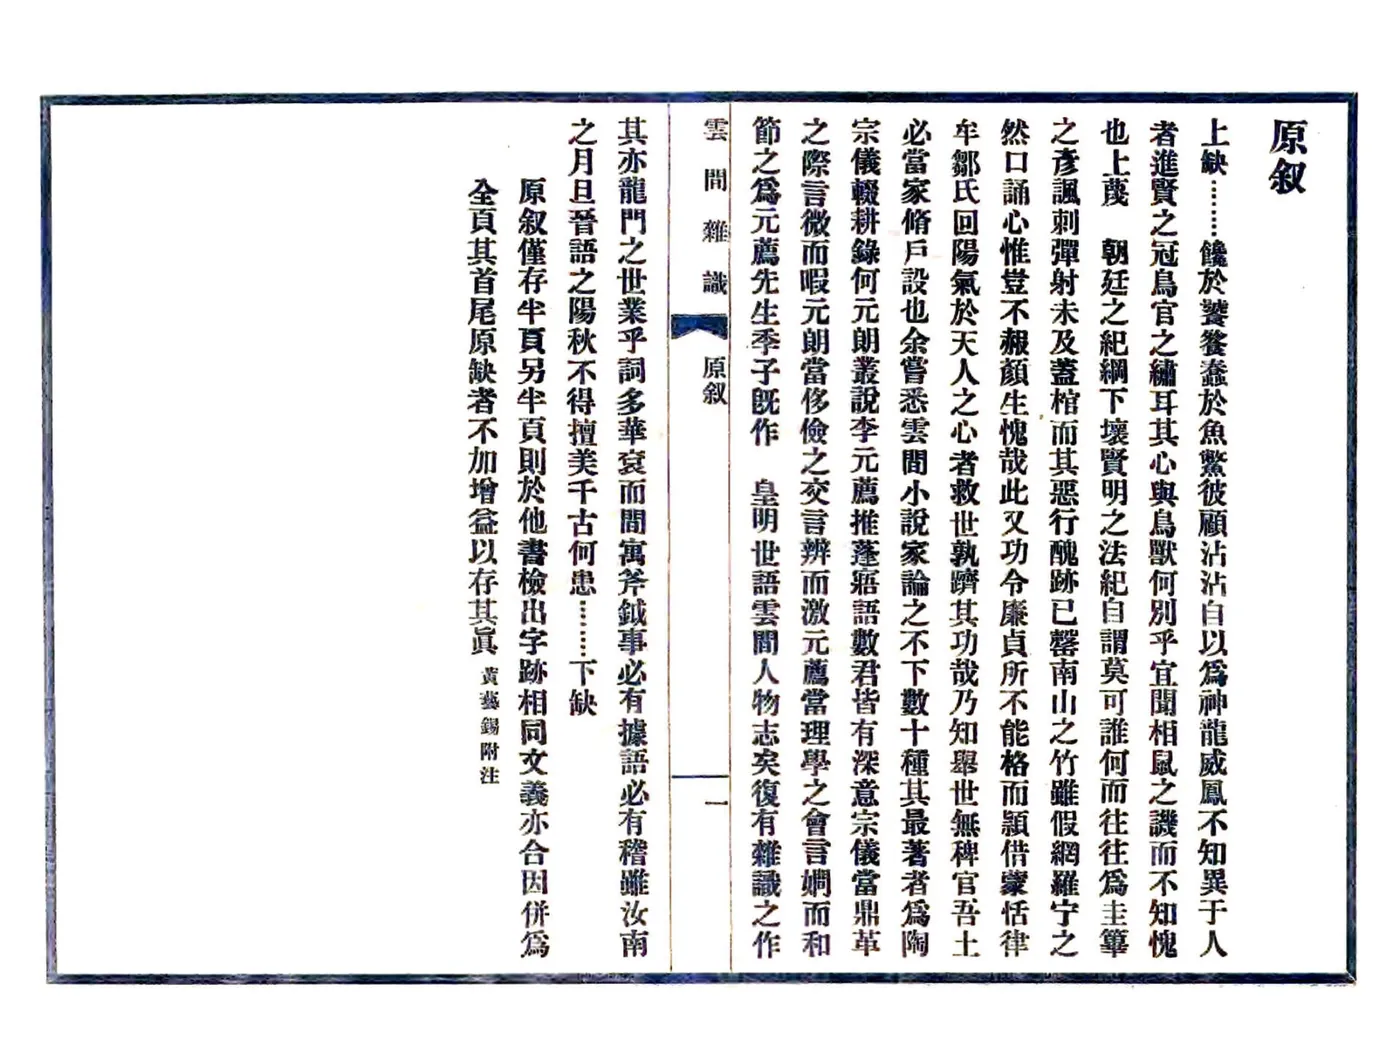 原叙
上缺………饞於饕餮蠢於魚鱉彼顧沾沾自以爲神龍威鳳不知異于人
者進賢之冠鳥官之繡耳其心與鳥獸何別乎宜聞相鼠之譏而不知愧
也上蔑　朝廷之紀綱下壞賢明之法紀自謂莫可誰何而往往爲圭篳
之彥諷刺彈射未及蓋棺而其惡行醜跡已罄南山之竹雖假網羅宁之
然口誦心惟豈不赧顏生愧哉此又功令廉貞所不能格而顓借蒙恬律
牟鄒氏回陽氣於天人之心者救世孰躋其功哉乃知舉世無稗官吾土
必當家脩戶設也余嘗悉雲間小說家論之不下數十種其最著者爲陶
宗儀輟耕錄何元朗叢說李元薦推蓬寤語數君皆有深意宗儀當鼎革
之際言微而暇元朗當侈儉之交言辨而激元薦當理學之會言嫻而和
節之爲元薦先生季子旣作　皇明世語雲間人物志矣復有雜識之作
雲間雜識
原叙
一
其亦龍門之世業乎詞多華袞而間寓斧鉞事必有據語必有稽雖汝南
之月旦晉語之陽秋不得擅美千古何患………下缺
原叙僅存半頁另半頁則於他書檢出字跡相同文義亦合因併爲
全頁其首尾原缺者不加增益以存其眞 黃藝錫附注